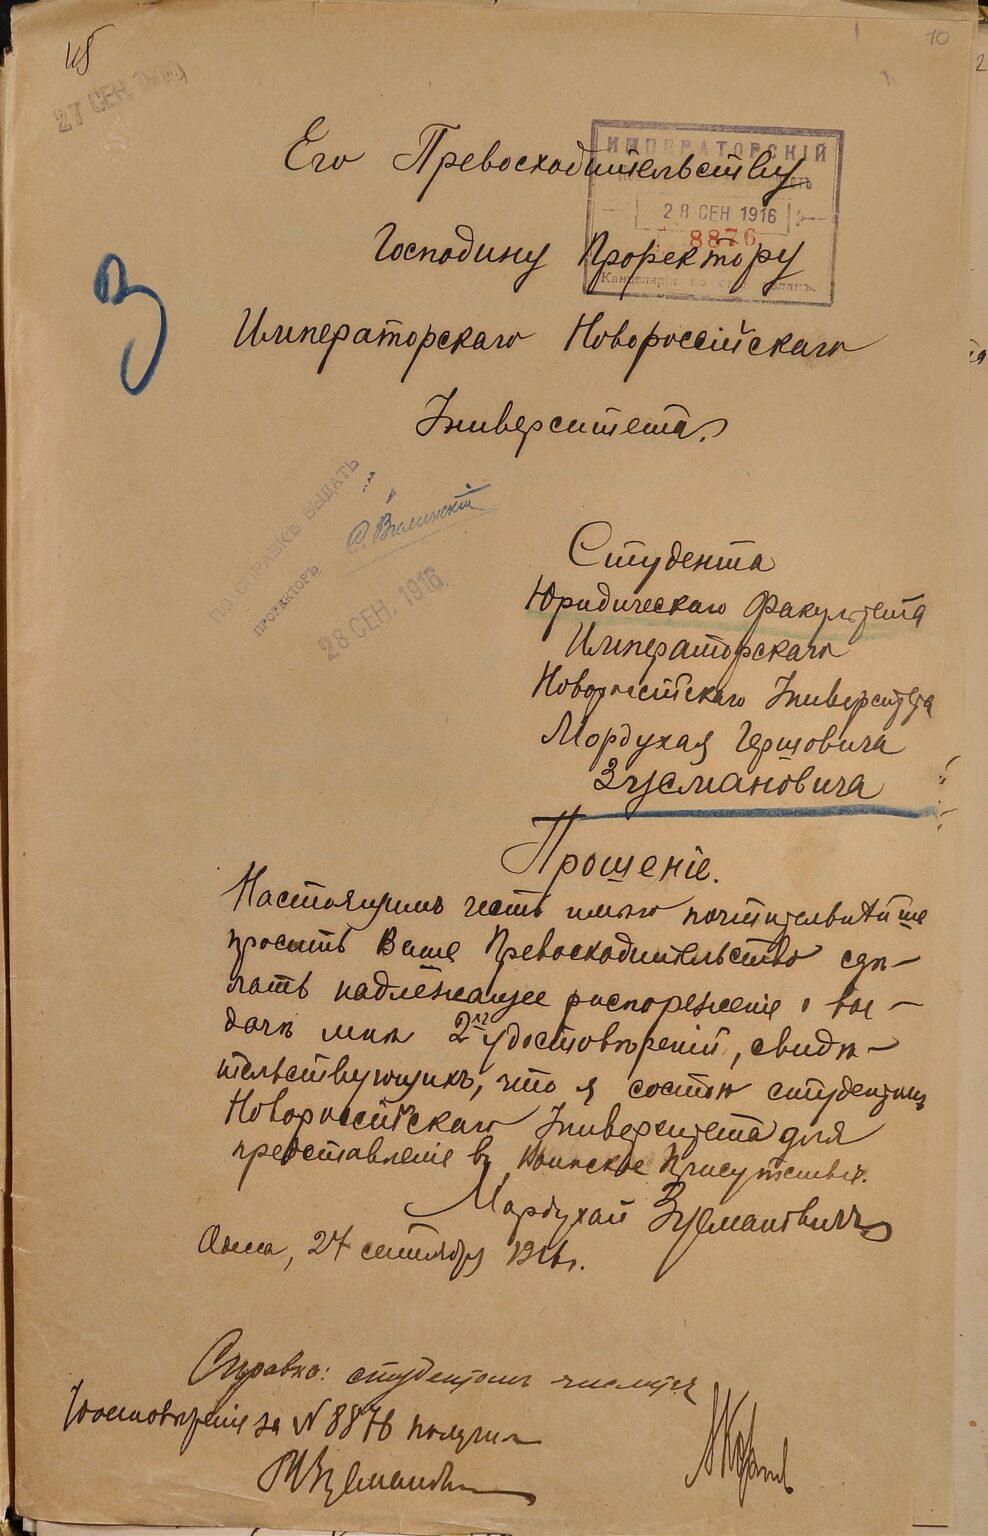 10
27 СЕН 1916
Его Превосходительству
ИМПЕРАТОРСКІЙ
28 СЕН 1916
8876
Господину Проректору
Канцелярія по студ.
З
Императорскаго Новороссійскаго
Университета.
ПО СПРАВКѢ ВЫДАТЬ
ПРОРЕКТОРЪ
С. Вилинскій
28 СЕН. 1916
Студента
Юридическаго Факультета
Императорскаго
Новороссійскаго Университета
Мордухая Гершовича
Зусмановича
Прошеніе.
Настоящимъ честь имѣю почтительнѣйше
просить Ваше Превосходительство сдѣ-
лать надлежащее распоряженіе о вы-
дачѣ мнѣ 2хъ удостовѣреній, свидѣ-
тельствующихъ, что я состою студентомъ
Новороссійскаго Университета для
представленіе въ Воинское Присутствіе.
Мордухай Зусмановичъ
Одесса, 27 сентября 1916 г.
Справка: студентомъ числится
Удостовѣреніе за № 8876 получилъ
М Зусмановичъ